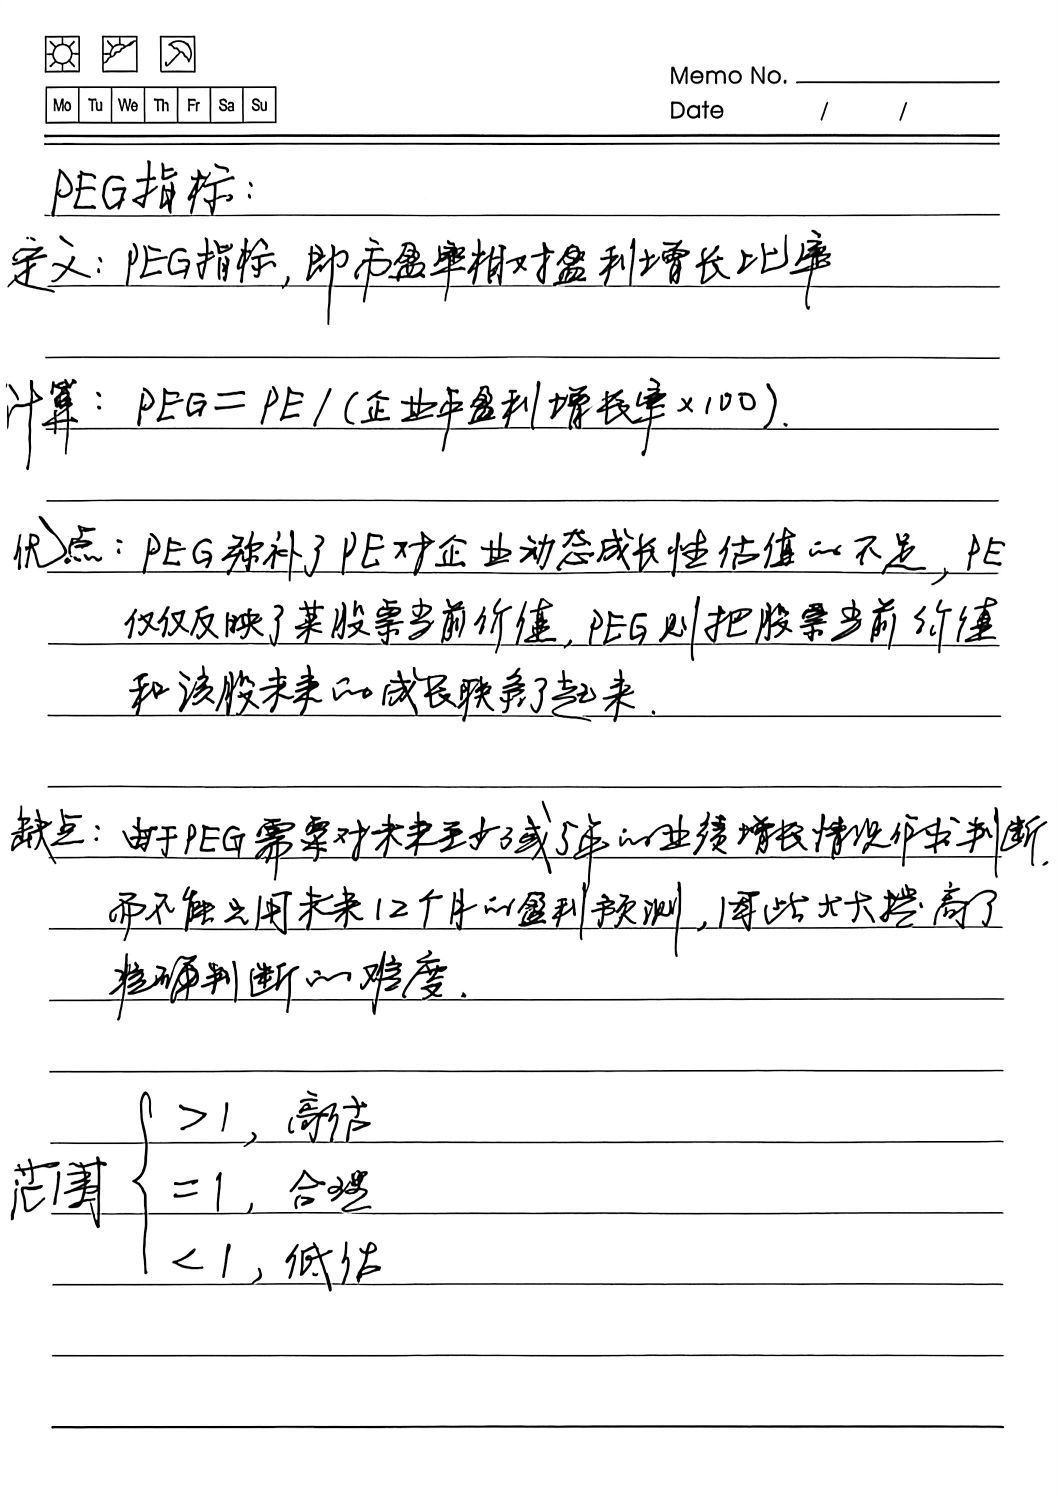 Memo No.
Mo Tu We Th Fr Sa Su
Date / /
PEG指标:
定义: PEG指标, 即市盈率相对盈利增长比率
计算: PEG = PE / (企业年盈利增长率×100).
优点: PEG弥补了PE对企业动态成长性估值的不足, PE
仅仅反映了某股票当前价值, PEG则把股票当前价值
和该股未来的成长联系了起来.
缺点: 由于PEG需要对未来至少3或5年的业绩增长情况作出判断.
而不能只用未来12个月的盈利预测, 因此大大提高了
准确判断的难度.
>1, 高估
范围 =1, 合理
<1, 低估